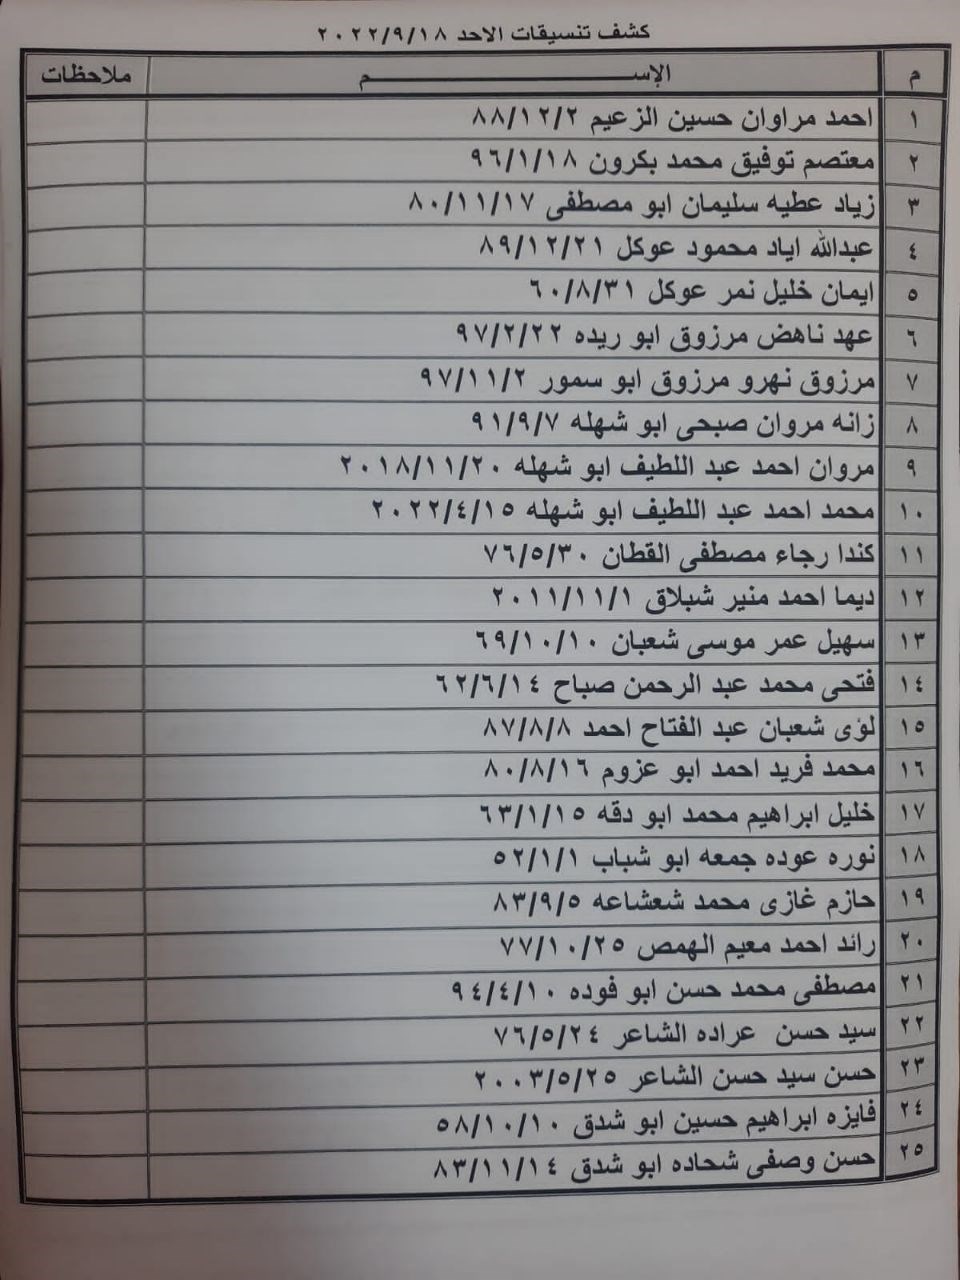 كشف تنسيقات الاحد ٢٠٢٢/٩/١٨
م الإســـــــــم ملاحظات
١ احمد مراوان حسين الزعيم ٨٨/١٢/٢
٢ معتصم توفيق محمد بكرون ٩٦/١/١٨
٣ زياد عطيه سليمان ابو مصطفى ٨٠/١١/١٧
٤ عبدالله اياد محمود عوكل ٨٩/١٢/٢١
٥ ايمان خليل نمر عوكل ٦٠/٨/٣١
٦ عهد ناهض مرزوق ابو ريده ٩٧/٢/٢٢
٧ مرزوق نهرو مرزوق ابو سمور ٩٧/١١/٢
٨ زانه مروان صبحى ابو شهله ٩١/٩/٧
٩ مروان احمد عبد اللطيف ابو شهله ٢٠١٨/١١/٢٠
١٠ محمد احمد عبد اللطيف ابو شهله ٢٠٢٢/٤/١٥
١١ كندا رجاء مصطفى القطان ٧٦/٥/٣٠
١٢ ديما احمد منير شبلاق ٢٠١١/١١/١
١٣ سهيل عمر موسى شعبان ٦٩/١٠/١٠
١٤ فتحى محمد عبد الرحمن صباح ٦٢/٦/١٤
١٥ لؤى شعبان عبد الفتاح احمد ٨٧/٨/٨
١٦ محمد فريد احمد ابو عزوم ٨٠/٨/١٦
١٧ خليل ابراهيم محمد ابو دقه ٦٣/١/١٥
١٨ نوره عوده جمعه ابو شباب ٥٢/١/١
١٩ حازم غازى محمد شعشاعه ٨٣/٩/٥
٢٠ رائد احمد معيم الهمص ٧٧/١٠/٢٥
٢١ مصطفى محمد حسن ابو فوده ٩٤/٤/١٠
٢٢ سيد حسن عراده الشاعر ٧٦/٥/٢٤
٢٣ حسن سيد حسن الشاعر ٢٠٠٣/٥/٢٥
٢٤ فايزه ابراهيم حسين ابو شدق ٥٨/١٠/١٠
٢٥ حسن وصفى شحاده ابو شدق ٨٣/١١/١٤